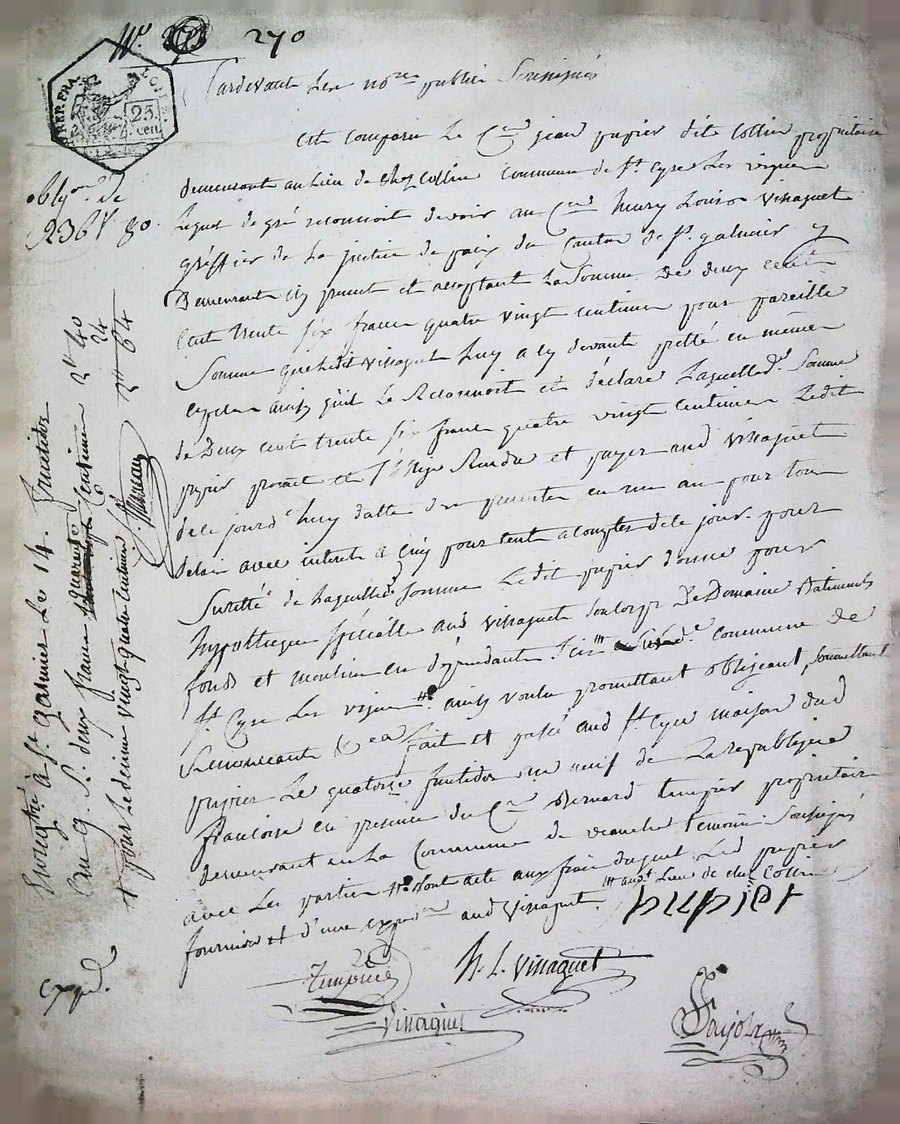 N.° 270
REP. FRA.
25. cen.
Pardevant Les no.res publics Soussignés
Est comparu Le C.en jean papier dit Collin propriétaire
demeurant au Lieu de chez Collin Commune de S.t Cyre Les vignes
Lequel de gré reconnoit devoir au C.en henry Louis Vinaguet
gréffier de La justice de paix du Canton de S.t galmier y
Demeurant icy present et acceptant La Somme De deux cent
Cent trente six francs quatre vingt centimes pour pareille
Somme que Ledit Vinaguet Luy a cy devant pretté en mêmes
especes ainsy qu'il Le Reconnoit et déclare Laquelle d.e Somme
de Deux cent trente six francs quatre vingt centimes Ledit
papier promet et s'oblige Rendre et payer aud Vinaguet
de ce jourd'huy datte des presentes en un an pour tout
delai avec interets a cinq pour cent a comptes de ce jour. pour
Suretté de Laquelle Somme Ledit papier donne pour
hypotheque spécialle aud Vinaguet Le Domaine Batiments
fonds et moulin en dépendant commune de
S.t Cyre Les vignes ainsy voulu promettant obligeant, Soumettant
Renonceant &ca fait et passé aud S.t Cyre maison dud
papier Le quatorse fructidor an neuf de La republique
francoise en presence du C.en Bernard propriétaire
demeurant en La Commune de temoin Soussigné
avec Les parties dont acte aux frais duquel Led papier
fournira et d'une exp.on aud Vinaguet. aud.t Lieu de chez Collin
papier
H. L. Vinaguet
Vinaguet
oblig.on de
236 80.
Enregtré à S.t galmier Le 14. fructidor
an 9. R. deux francs quarante Centimes 2 40
24
2 64
plus Le dixme vingt quatre centimes
exped.